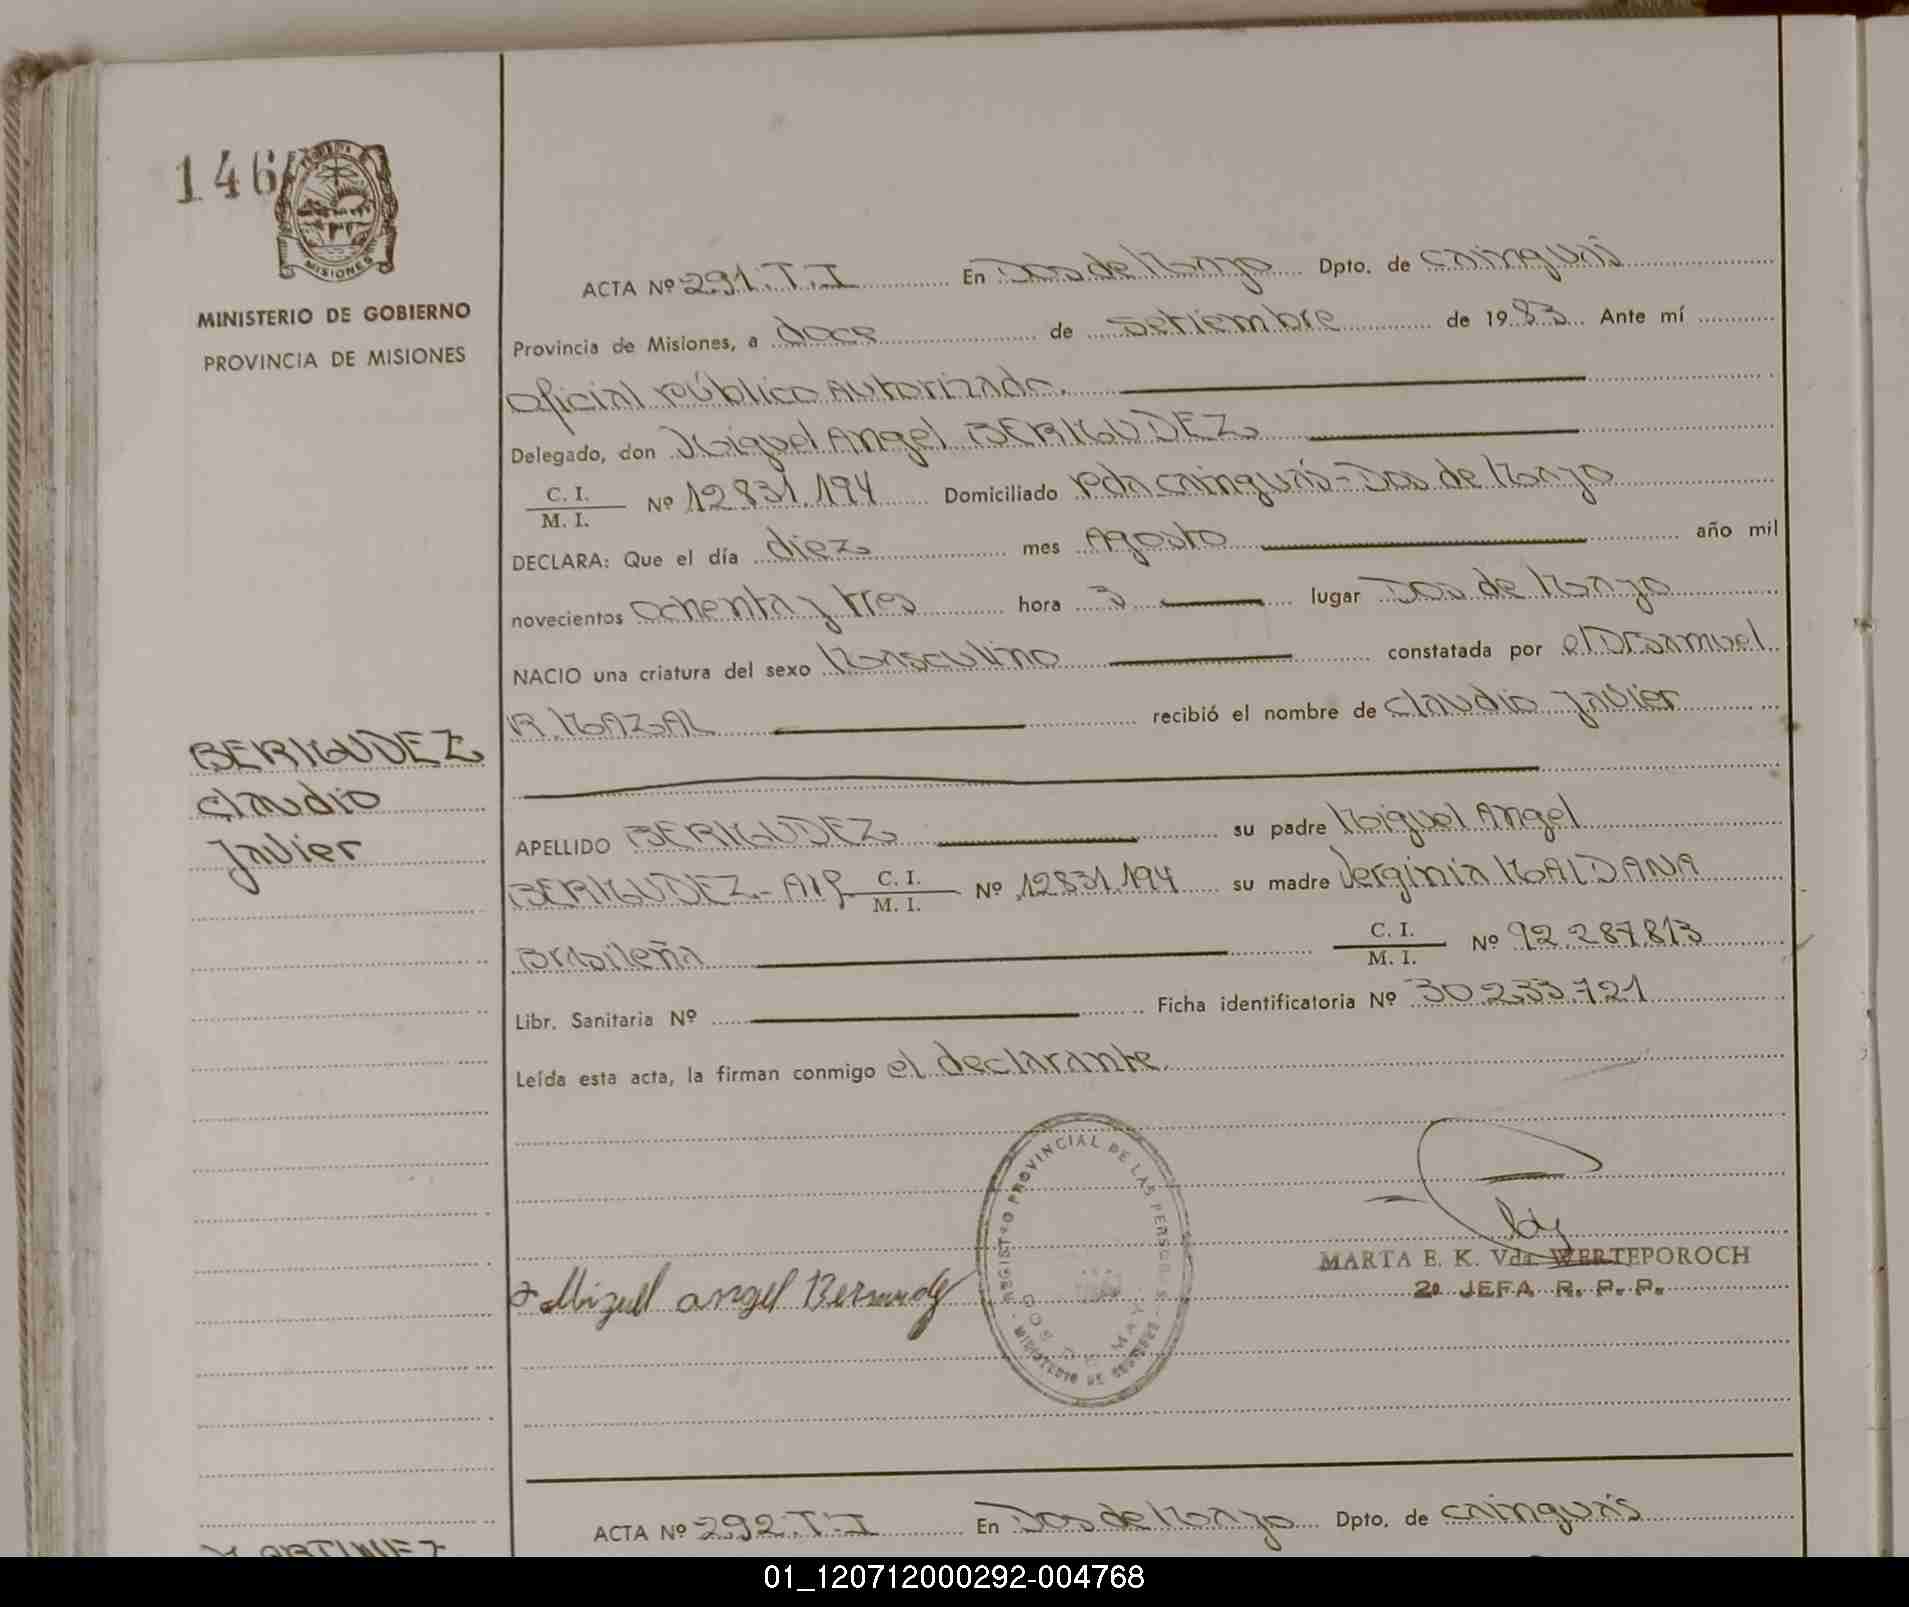 146
MISIONES
MINISTERIO DE GOBIERNO
PROVINCIA DE MISIONES
ACTA Nº 291.T.I En Dos de Mayo Dpto. de Cainguás
Provincia de Misiones, a doce de setiembre de 1983 Ante mí
Oficial Público Autorizado.
Delegado, don Miguel Angel BERMUDEZ
C. I.
M. I. Nº 12.831.194 Domiciliado Pda Cainguás-Dos de Mayo
DECLARA: Que el día diez mes Agosto año mil
novecientos ochenta y tres hora 3 lugar Dos de Mayo
NACIO una criatura del sexo Masculino constatada por el Dr Samuel
R. MAZAL recibió el nombre de Claudio Javier
BERMUDEZ
Claudio
Javier
APELLIDO BERMUDEZ su padre Miguel Angel
BERMUDEZ.- Arg. C. I.
M. I. Nº 12831.194 su madre Verginia MALDANA
Brasileña C. I.
M. I. Nº 92.287.813
Libr. Sanitaria Nº Ficha identificatoria Nº 30.233.721
Leída esta acta, la firman conmigo el declarante.
REGISTRO PROVINCIAL DE LAS PERSONAS - MINISTERIO DE GOBIERNO
DOS DE MAYO
Miguel angel Bermudez
MARTA E. K. Vda. WERTEPOROCH
2ª JEFA R. P. P.
ACTA Nº 292.T.I En Dos de Mayo Dpto. de Cainguás
MARTINEZ
01_120712000292-004768